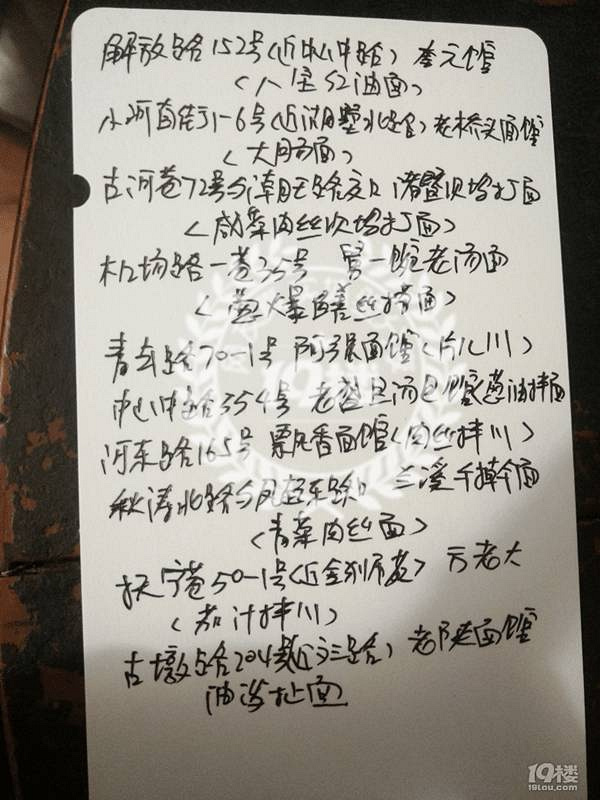 解放路152号(近中山中路) 奎元馆
(八宝红油面)
小河直街1-6号(近湖墅北路) 老桥头面馆
(大肠面)
古河巷72号与潮王路交口 诸暨次坞打面
(咸菜肉丝次坞打面)
机场路一巷35号 第一馆老汤面
(葱爆鳝丝捞面)
青年路70-1号 阿强面馆(片儿川)
中山中路354号 老盛昌汤包馆(葱油拌面
河东路165号 票凡香面馆(肉丝拌川)
秋涛北路与凤起东路口 兰溪手擀面
(青菜肉丝面)
50-1号(近金
(茄汁拌川)
古墩路204号(近文三路) 老陕面馆
油泼扯面
19楼
19楼
19lou.com